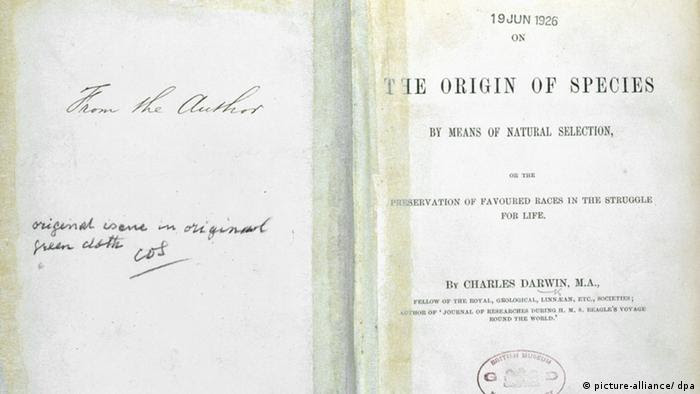 From the Author
original issue in original
green cloth
19 JUN 1926
ON
THE ORIGIN OF SPECIES
BY MEANS OF NATURAL SELECTION,
OR THE
PRESERVATION OF FAVOURED RACES IN THE STRUGGLE
FOR LIFE.
BY CHARLES DARWIN, M.A.,
FELLOW OF THE ROYAL, GEOLOGICAL, LINNÆAN, ETC., SOCIETIES;
AUTHOR OF 'JOURNAL OF RESEARCHES DURING H. M. S. BEAGLE'S VOYAGE
ROUND THE WORLD.'
BRITISH MUSEUM
© picture-alliance/ dpa